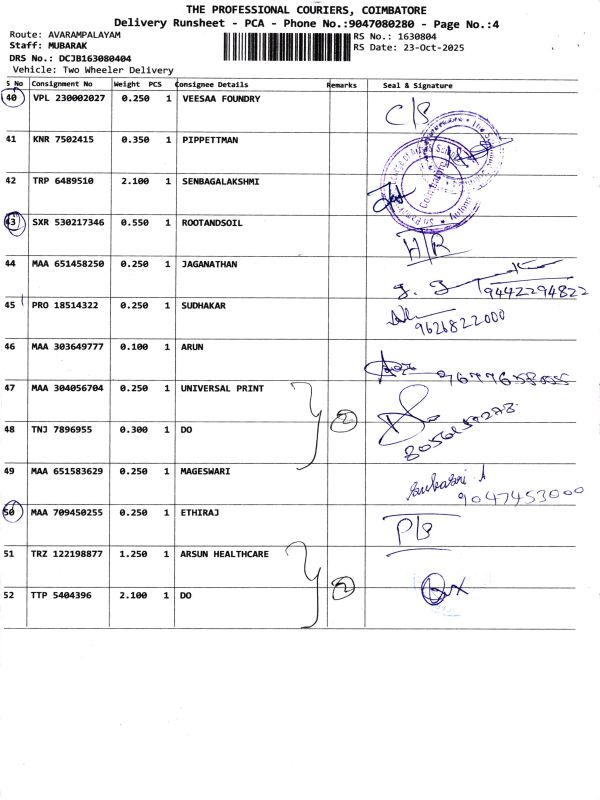 THE PROFESSIONAL COURIERS, COIMBATORE
Delivery Runsheet - PCA - Phone No.:9047080280 - Page No.:4
Route: AVARAMPALAYAM RS No.: 1630804
Staff: MUBARAK RS Date: 23-Oct-2025
DRS No.: DCJB163080404
Vehicle: Two Wheeler Delivery
S No Consignment No Weight PCS Consignee Details Remarks Seal & Signature
40 VPL 230002027 0.250 1 VEESAA FOUNDRY C/S
41 KNR 7502415 0.350 1 PIPPETTMAN
42 TRP 6489510 2.100 1 SENBAGALAKSHMI
43 SXR 530217346 0.550 1 ROOTANDSOIL H/R
44 MAA 651458250 0.250 1 JAGANATHAN 9442294822
45 PRO 18514322 0.250 1 SUDHAKAR 9626822000
46 MAA 303649777 0.100 1 ARUN
47 MAA 304056704 0.250 1 UNIVERSAL PRINT
48 TNJ 7896955 0.300 1 DO 2
49 MAA 651583629 0.250 1 MAGESWARI 9047453000
50 MAA 709450255 0.250 1 ETHIRAJ P/S
51 TRZ 122198877 1.250 1 ARSUN HEALTHCARE
52 TTP 5404396 2.100 1 DO 2